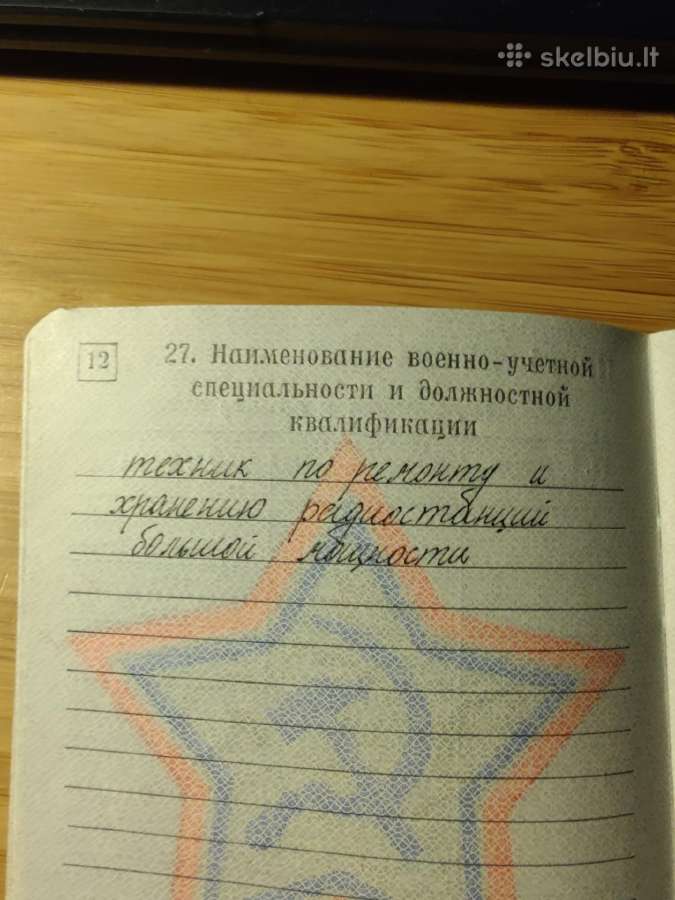 skelbiu.lt
12
27. Наименование военно-учетной
специальности и должностной
квалификации
техник по ремонту и
хранению радиостанций
большой мощности